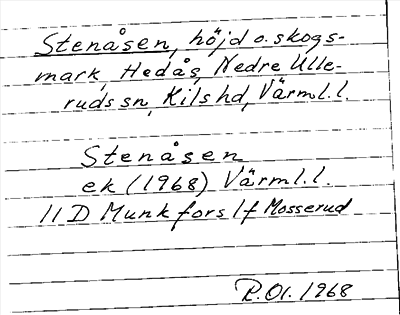 Stenåsen, höjd o. skogs-
mark, Hedås, Nedre Ulle-
ruds sn, Kils hd, Värml. l.
Stenåsen
ek (1968) Värml. l.
11 D Munkfors 1f Mosserud
P.Ol. 1968